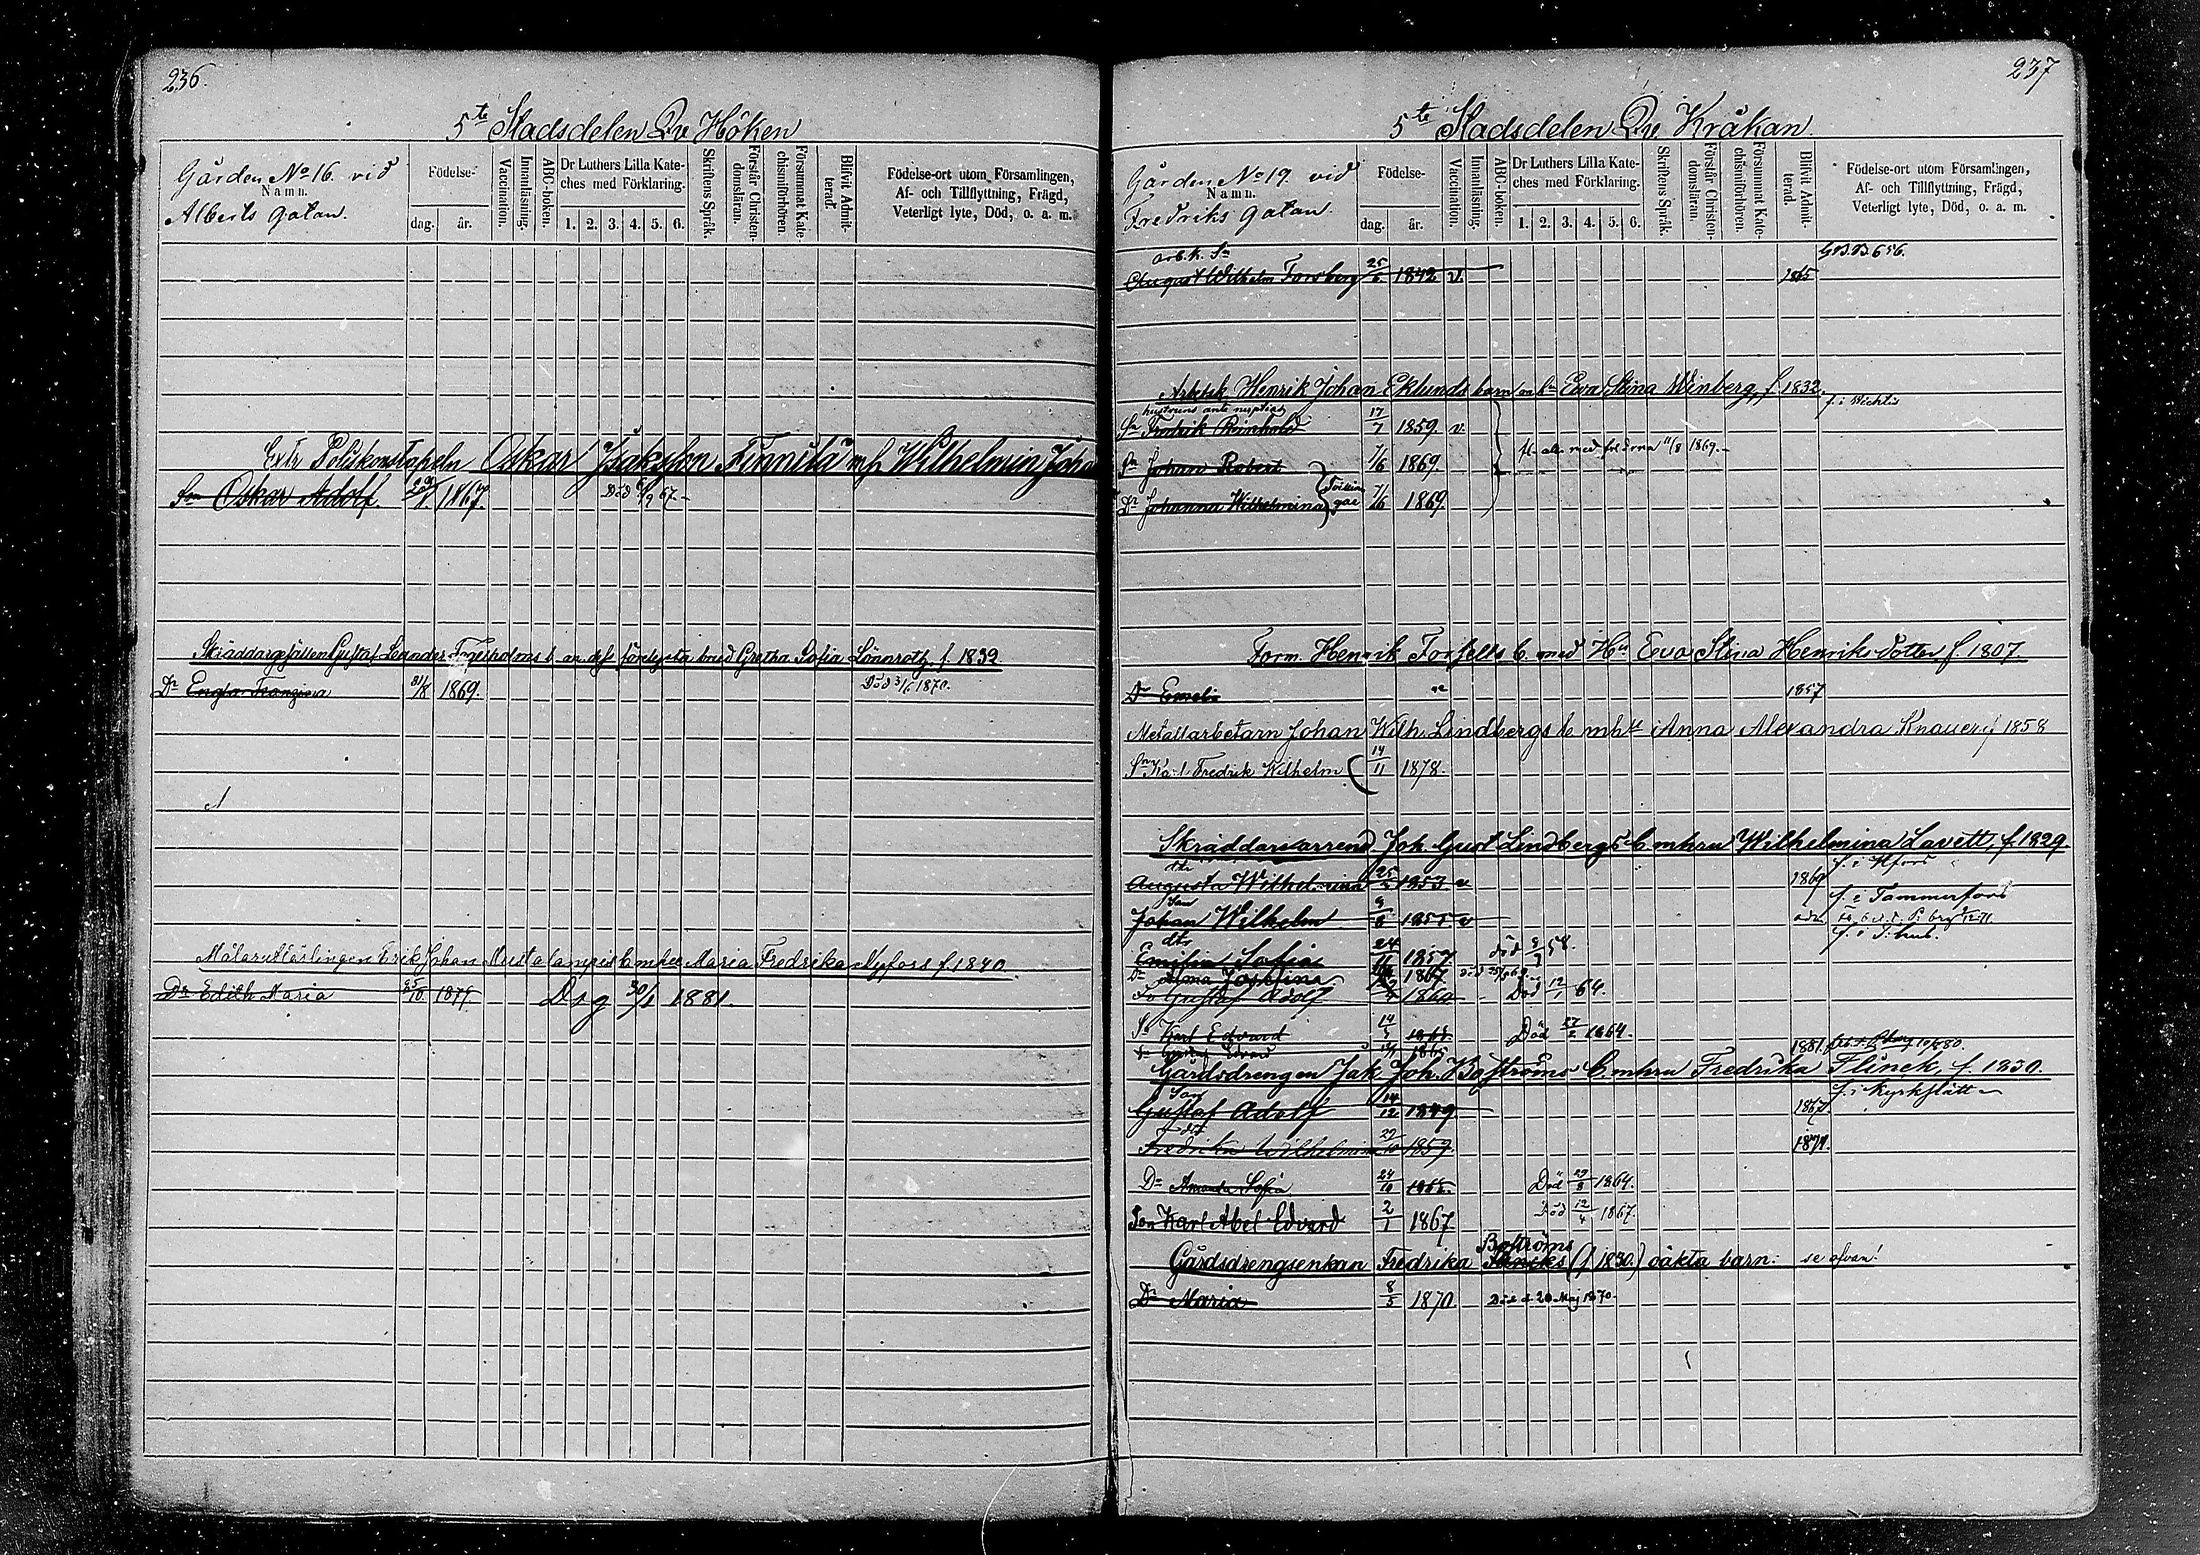 236.
5te Stadsdelen Qre Höken
Gården No 16. vid
Namn.
Alberts gatan.
Födelse-
dag. år.
Vaccination.
Innanläsning.
ABC-boken.
Dr Luthers Lilla Kate-
ches med Förklaring.
1. 2. 3. 4. 5. 6.
Skriftens Språk.
Förstår Christen-
domsläran.
Försummat Kate-
chismiförhören.
Blifvit Admit-
terad.
Födelse-ort utom Församlingen,
Af- och Tillflyttning, Frägd,
Veterligt lyte, Död, o. a. m.
Extr Poliskonstapeln Oskar Isaksson Finnilä mh Wilhelmin Joha
Son Oskar Adolf. 1867. Död 6/9 67.
Skräddargesällen Gustaf Leander Fagerholms b. Gretha Sofia Lönnroth f. 1832
Dr Engla Franziska 31/8 1869. Död 3/6 1870.
Målarelärlingen Erik Johan Mustalampis b mhu Maria Fredrika Nyfors f. 1840
Dr Edith Maria 25/10 1879. Dsg 30/1 1881.
237
5te Stadsdelen Qre Kråkan.
Gården No 19. vid
Namn.
Fredriks gatan.
Födelse-
dag. år.
Vaccination.
Innanläsning.
ABC-boken.
Dr Luthers Lilla Kate-
ches med Förklaring.
1. 2. 3. 4. 5. 6.
Skriftens Språk.
Förstår Christen-
domsläran.
Försummat Kate-
chismiförhören.
Blifvit Admit-
terad.
Födelse-ort utom Församlingen,
Af- och Tillflyttning, Frägd,
Veterligt lyte, Död, o. a. m.
arb.k. Sn G.B.B 656.
August Wilhelm Forsberg 25/6 1842 v. 1865
Arb.k. Henrik Johan Eklunds barn Eva Stina Winberg, f 1832.
hustruns ante nuptias f. i Wichtis
Sn Fredrik Reinhold 17/7 1859 v.
Sn Johan Robert 7/6 1869 11/8 1869.
Dr Johanna Wilhelmina 7/6 1869.
Form. Henrik Forsells b. med Hu Eva Stina Henriksdotter f 1807
Dr Emelie 1857
Metallarbetarn Johan Wilh. Lindbergs b mhu Anna Alexandra Knauer f 1858
Sn Karl Fredrik Wilhelm 14/11 1878.
Skräddarearrend Joh. Gust Lindbergs b mhru Wilhelmina Lavett, f. 1829
dtr f. i Hfors
Augusta Wilhelmina 1853 v 1869
Son f. i Tammerfors
Johan Wilhelm 1855 v
dtr
Emilia Sofia 24/11 1857 död 58.
Dr Alma Josefina 1867
So Gustaf Adolf 1860 Död 12/1 64.
Sn Karl Edvard 14/3 Död 27/2 1864.
Sn Gustaf Edvard 1865 1881.
Gårdsdrengen Jak. Joh. Boströms b. mhru Fredrika Flinck, f. 1830.
Son f. i Kyrkslätt
Gustaf Adolf 14/12 1849 1867
dtr
Fredrika Wilhelmina 1859. 1871.
Dr Amanda Sofia 24/10 Död 29/8 1864.
Son Karl Abel Edvard 2/1 1867 Död 12/4 1867.
Boströms
Gårdsdrengsenkan Fredrika (f 1830.) oäkta barn: se ofvan!
Dr Maria 8/5 1870 Död d 20 Maj 1870.